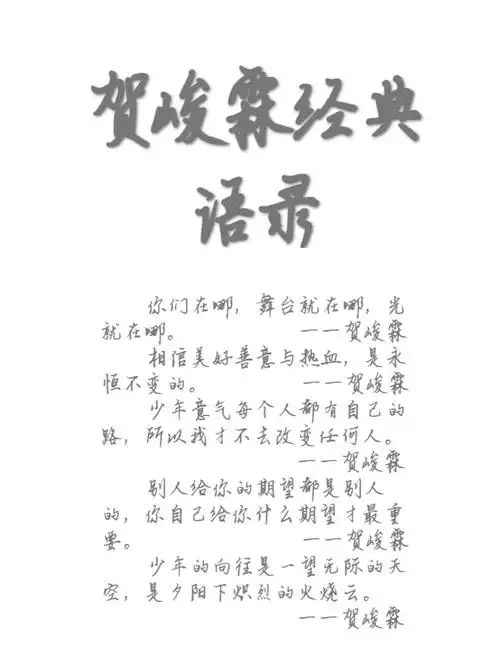 贺峻霖经典
语录
你们在哪，舞台就在哪，光
就在哪。 ——贺峻霖
相信美好善意与热血，是永
恒不变的。 ——贺峻霖
少年意气每个人都有自己的
路，所以我才不去改变任何人。
——贺峻霖
别人给你的期望都是别人
的，你自己给你什么期望才最重
要。 ——贺峻霖
少年的向往是一望无际的天
空，是夕阳下炽烈的火烧云。
——贺峻霖